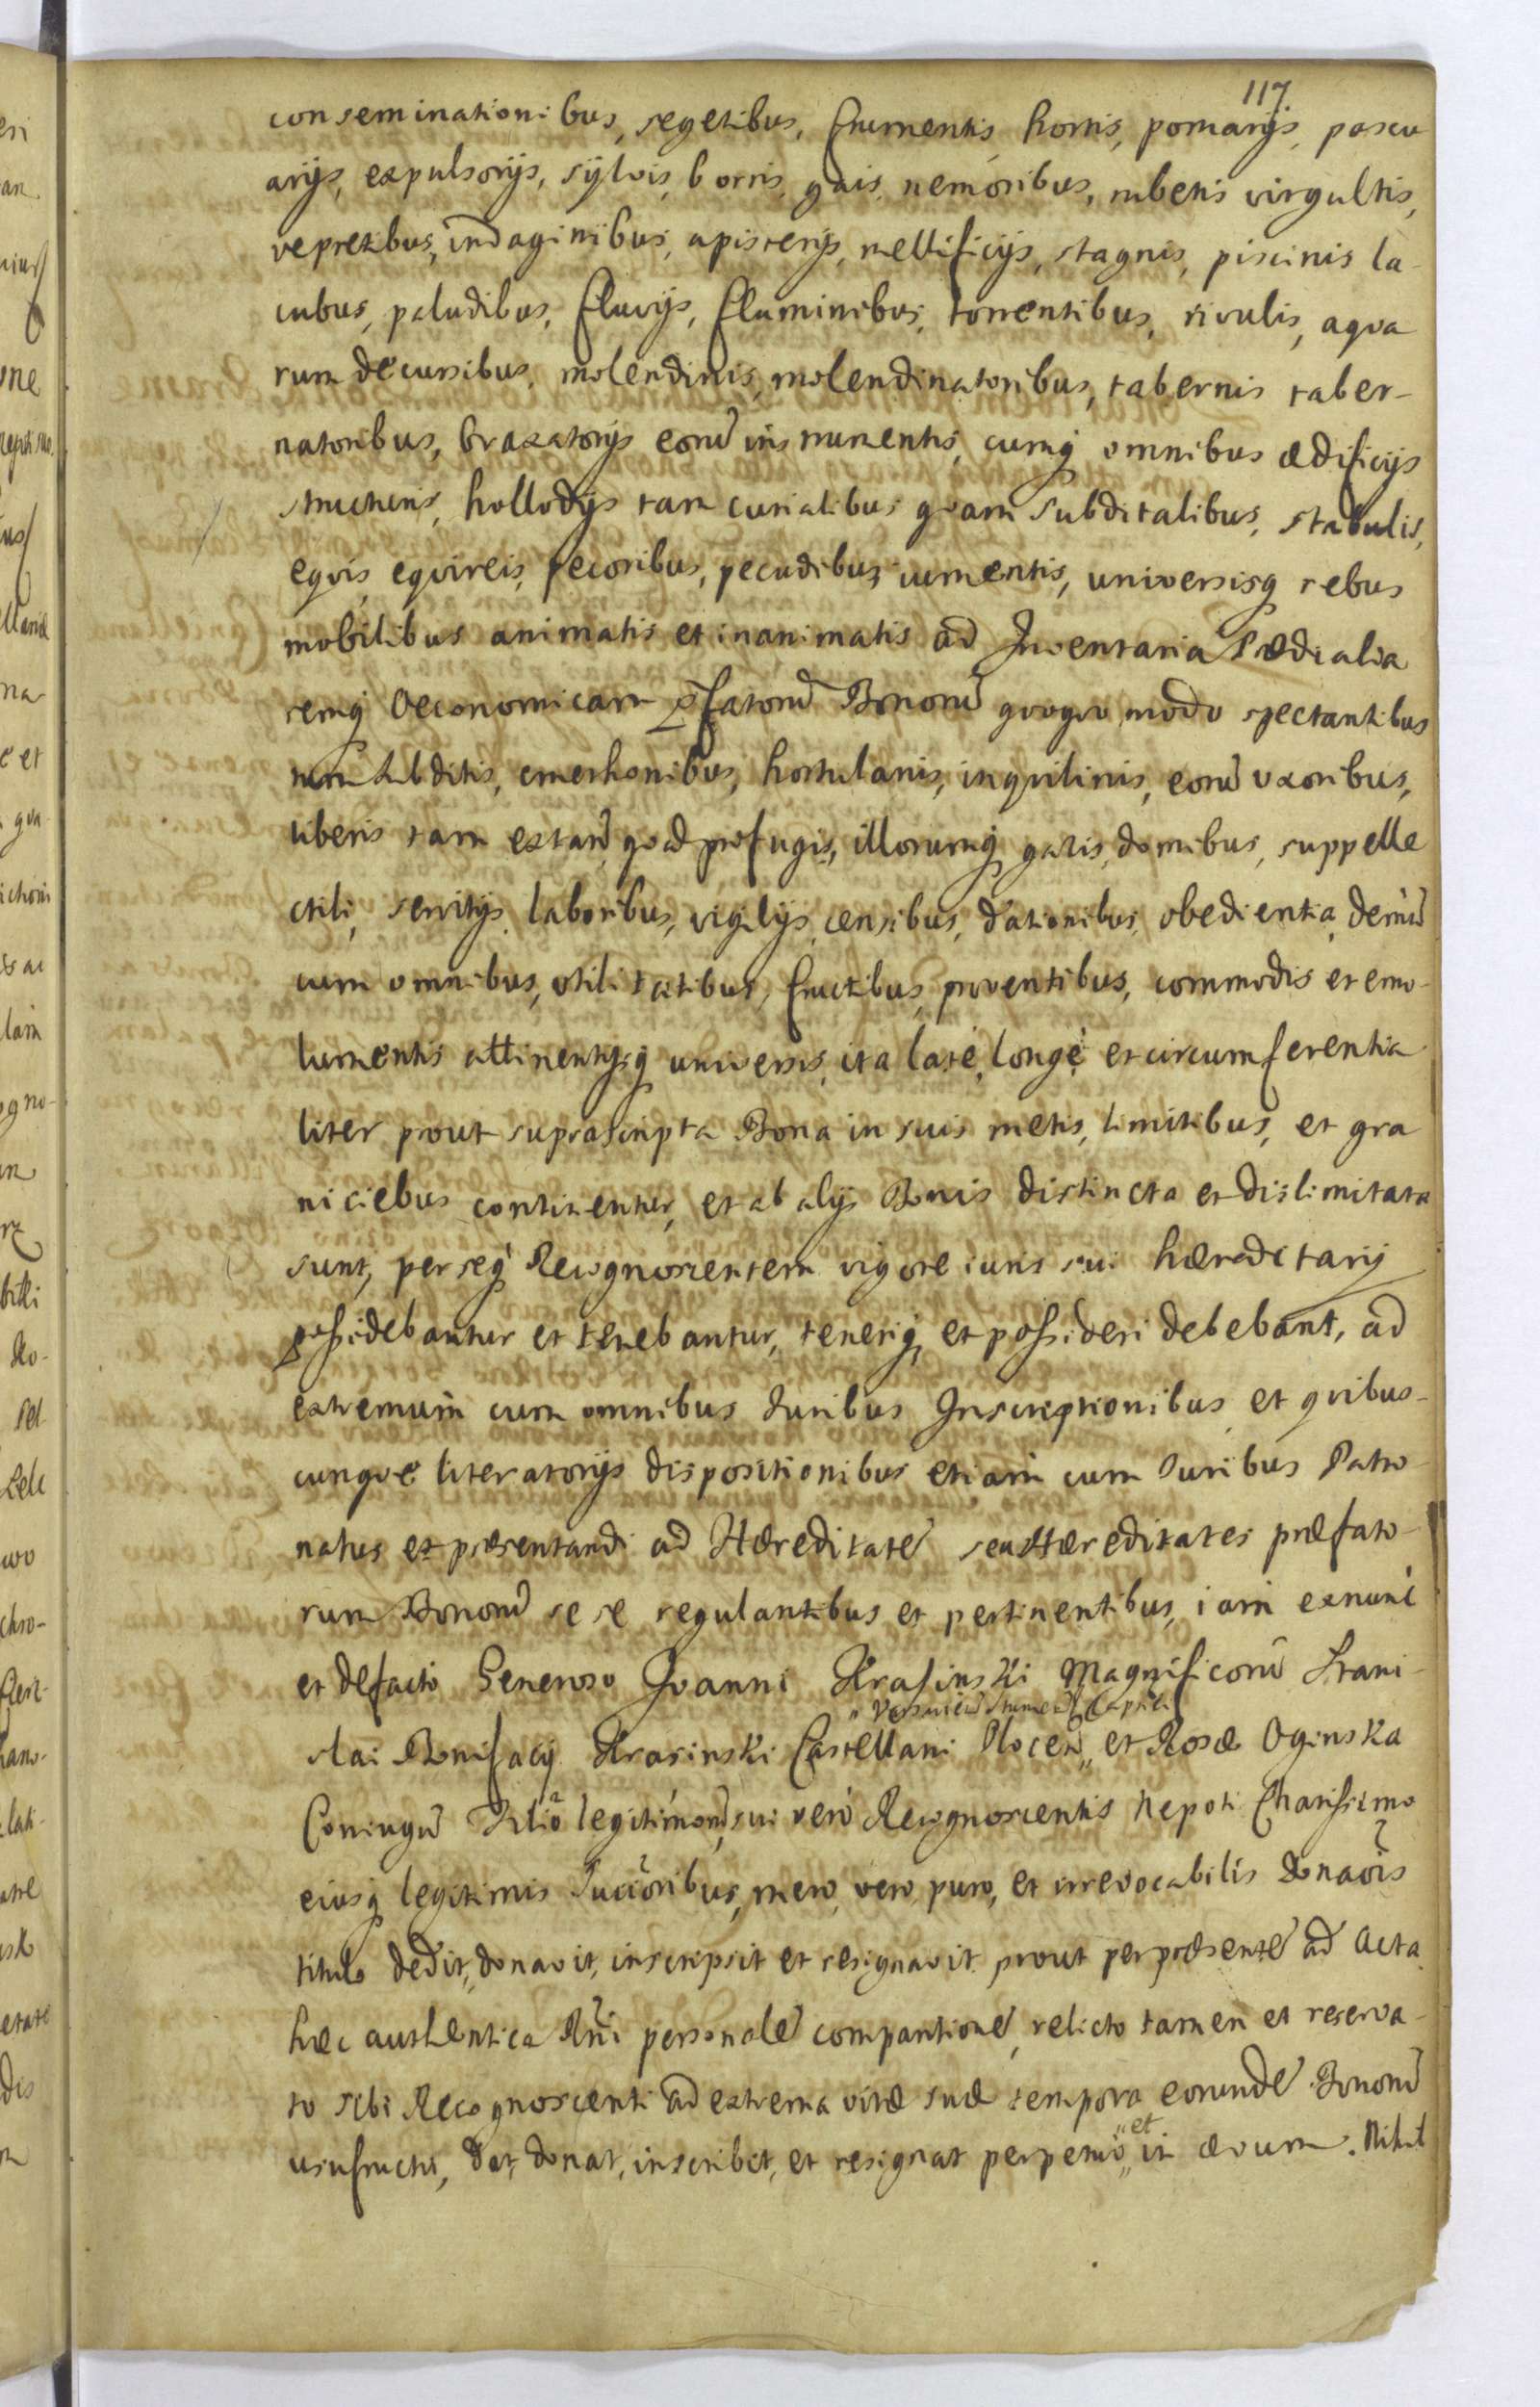 117.
conseminationibus, segetibus, frumentis hortis, pomarijs, pascu
arijs, expulsorijs, sylvis, borris, gais, nemoribus, rubetis virgultis,
vepretibus, indaginibus, apisterijs, mellificijs, stagnis, piscinis la-
cubus, paludibus, fluvijs, fluminibus, torrentibus, rivulis, aqva
rum decursibus, molendinis, molendinatoribus, tabernis taber-
natoribus, braxatorijs eorū instrumentis, cumq̢ omnibus ædificijs
structuris, hollodijs tam curialibus qvam subditalibus, stabulis,
eqvis, eqvireis, pecoribus, pecudibus, iumentis, universisq̢ rebus
mobilibus animatis et inanimatis ad Inventaria Prædialia
remq̢ Oeconomicam p̄fatorū Bonorū qvoqvo modo spectantibus
tum Subditis, cmethonibus, hortulanis, inqvilinis, eorū uxoribus,
liberis tam extañ, qvā profugis, illorumq̢ gazis, domibus, suppelle
ctili, servitijs laboribus, vigilijs, censibus, dationibus, obedientia, demū
cum omnibus, utilitatibus, fructibus, proventibus, commodis et emo-
lumentis attinentijsq̢ universis, ita latè, longè et circumferentia
liter prout suprascripta Bona in suis metis, limitibus, et gra
niciebus continentur, et ab alijs Bonis distincta et dislimitata
sunt, per seq̢ Recognoscentem vigore iuris sui hæreditarij
possidebantur et tenebantur, teneriq̢ et possideri debebant, ad
extremum cum omnibus Iuribus Inscriptionibus et qvibus-
cunqve literatorijs dispositionibus etiam cum Iuribus Patro-
natus et præsentandi ad Hæreditatē seu Hæreditates præfato-
rum Bonorū se se regulantibus et pertinentibus, iam exnunc
et defacto Generoso Joanni Krasinski Magnificorū Stani-
slai Bonifacij Krasinski Castellani Plocen̄ „ et Rosæ Oginska
Coniugū Filio legitimorū, sui verò Recognoscentis Nepoti Charissimo
eiusq̢ legitimis Succ̄oribus, mero, vero puro, et irrevocabilis donaōis
titulo dedit, donavit, inscripsit et resignavit prout per præsentē ad Acta
hæc authentica R̄ni personalē comparitionē, relicto tamen et reserva-
to sibi Recognoscenti ad extrema vitæ suæ tempora eorundē Bonorū
usufructu, dat, donat, inscribit, et resignat perpetuò „et„ in ævum. Nihil